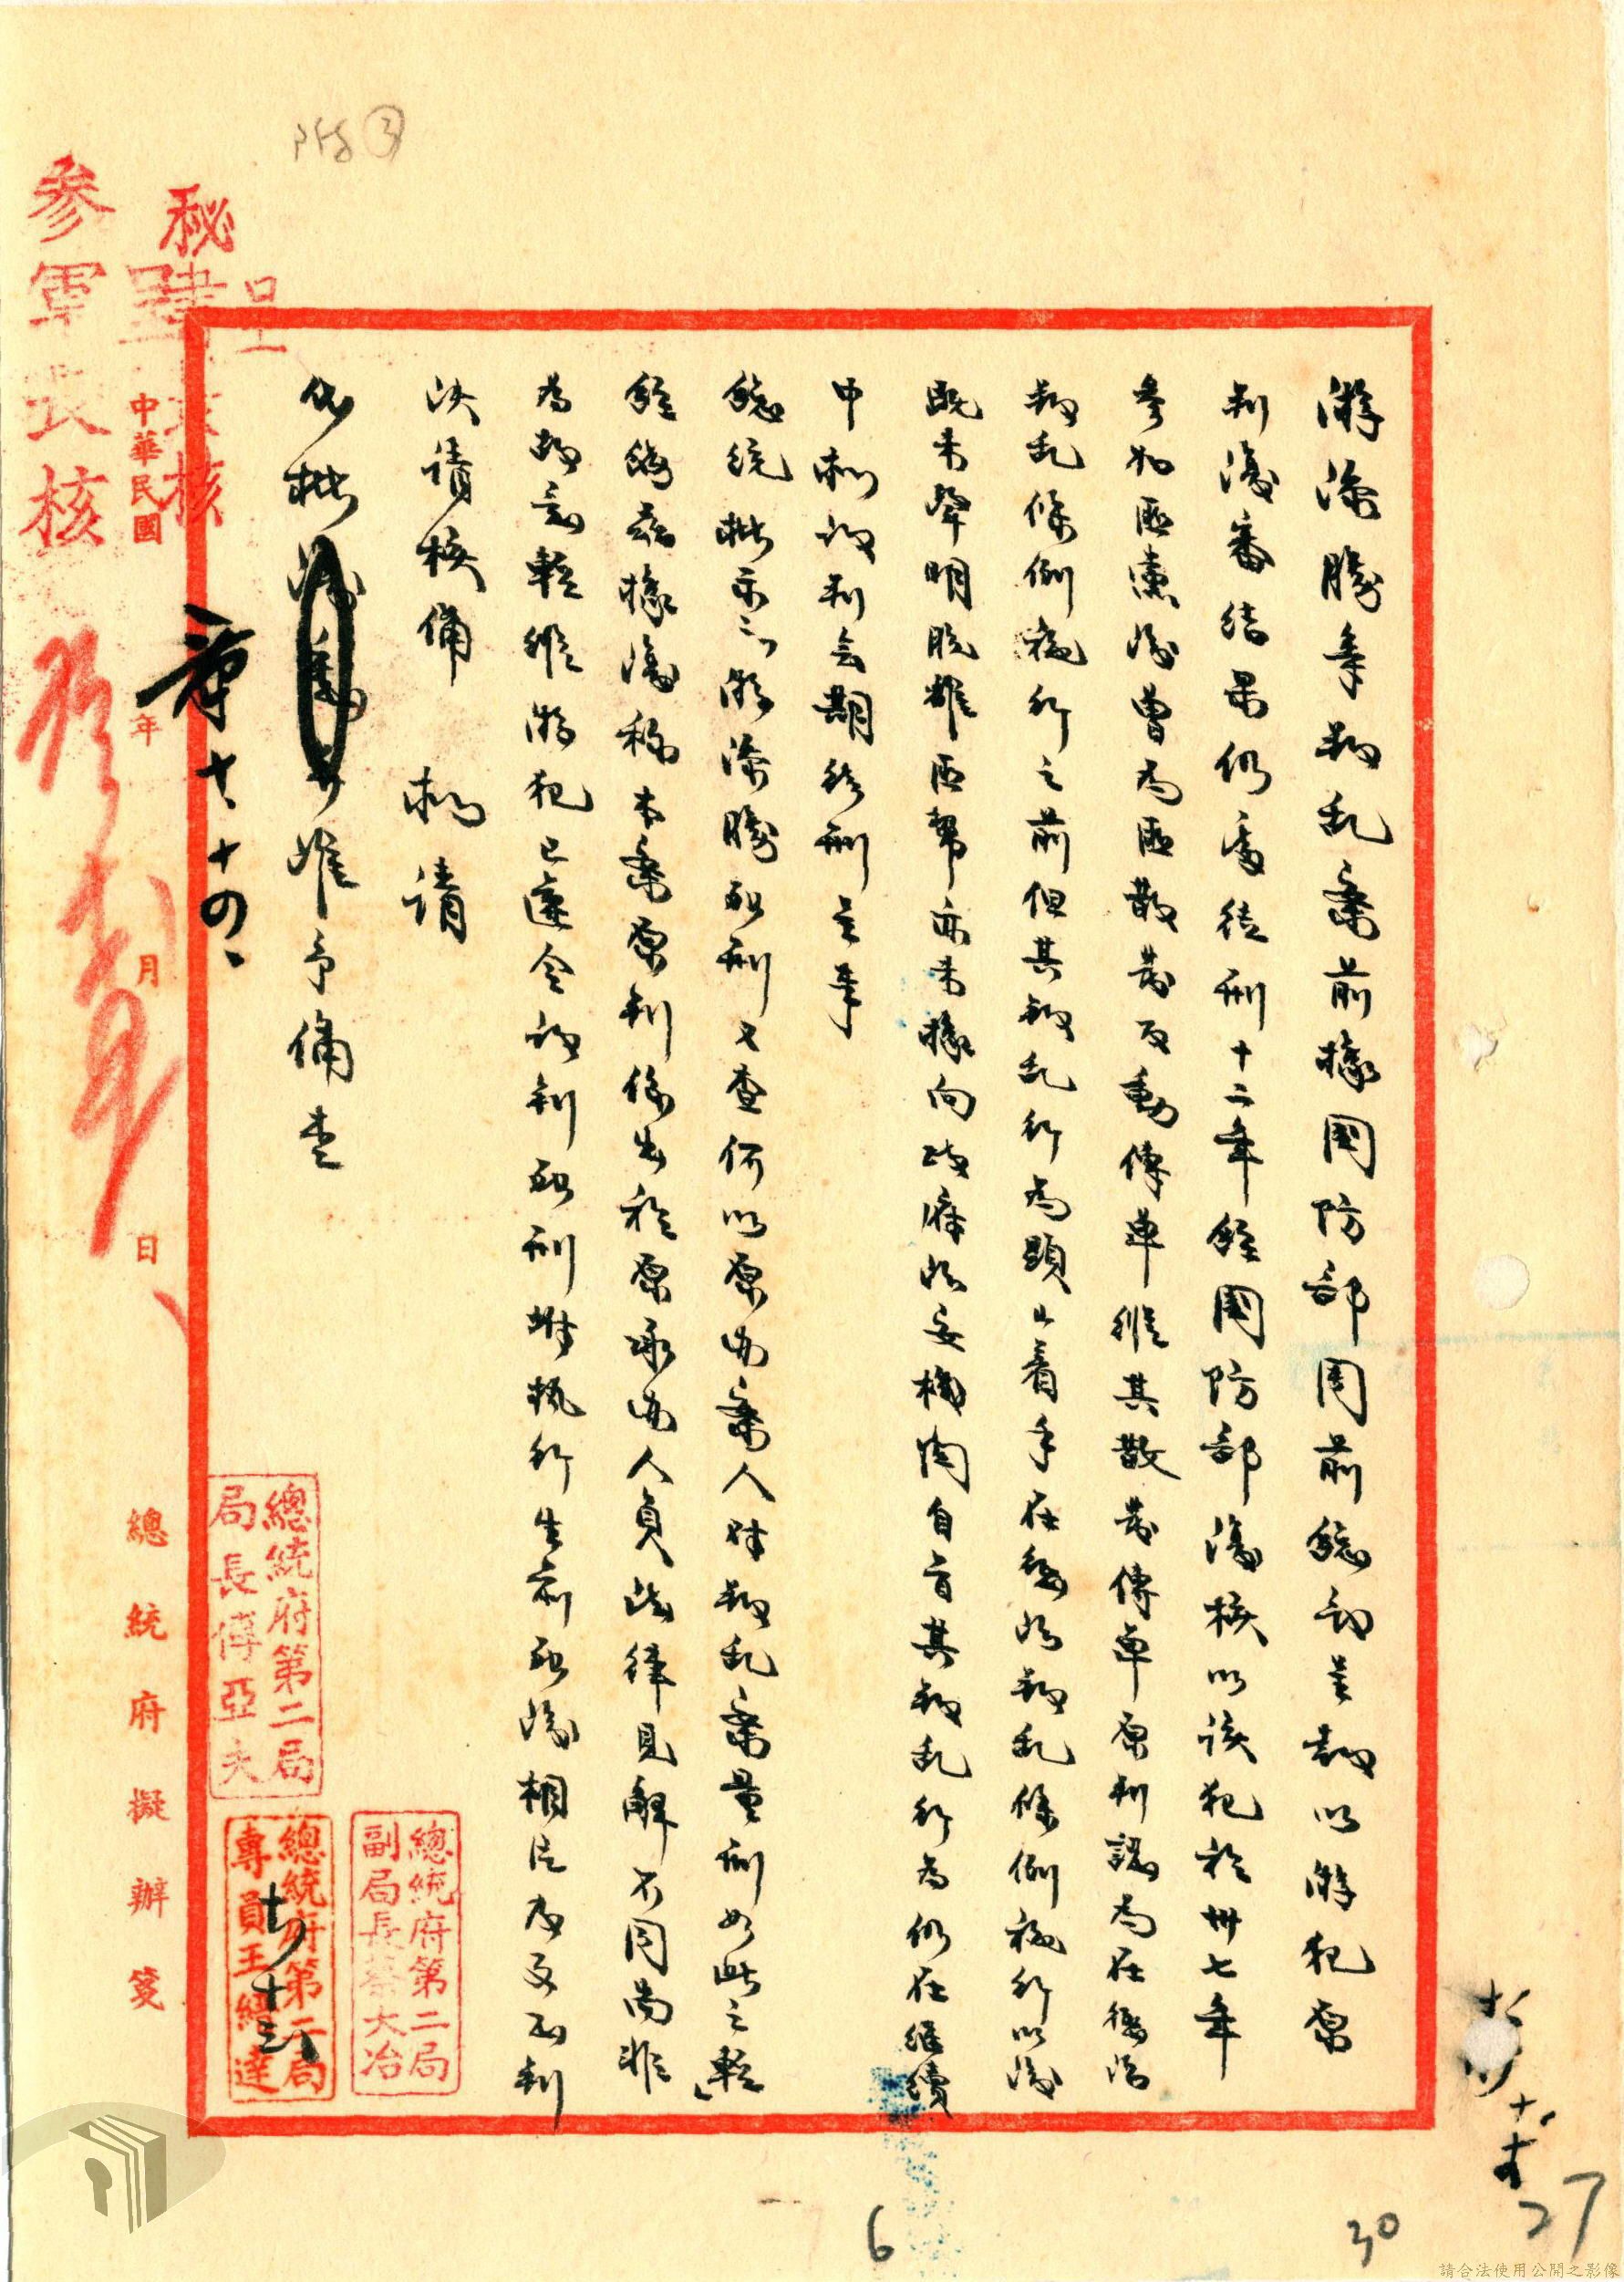 游添勝等叛亂案前據國防部周前總司呈報以游犯原
判復審結果仍處徒刑十二年經國防部復核以該犯於卅七年
參加匪黨後曾為匪散發反動傳單雖其散發傳單原判認為在懲治
叛亂條例施行之前但其叛亂行為顯已著手在懲治叛亂條例施行以後
既未聲明脫離匪幫亦未據向政府治安機關自首其叛亂行為仍在繼續
中擬改判無期徒刑呈奉
總統批示「游添勝死刑又查何以原由案人對叛亂案量刑如此之輕」
經飭茲據復稱本案原判係出於原承由人員法律見解不同尚非
為故意輕縱游犯已遵令改判死刑附執行生前死後相片及更正判
決請核備 擬請
化批 准予備查
章 七、十四、
中華民國 年 月 日
總統府擬辦箋
秘書長核
參軍長核
總統府第二局
局長傅亞夫
總統府第二局
副局長蔡大冶
總統府第二局
專員王經達
附③
6
30
27
請合法使用公開之影像